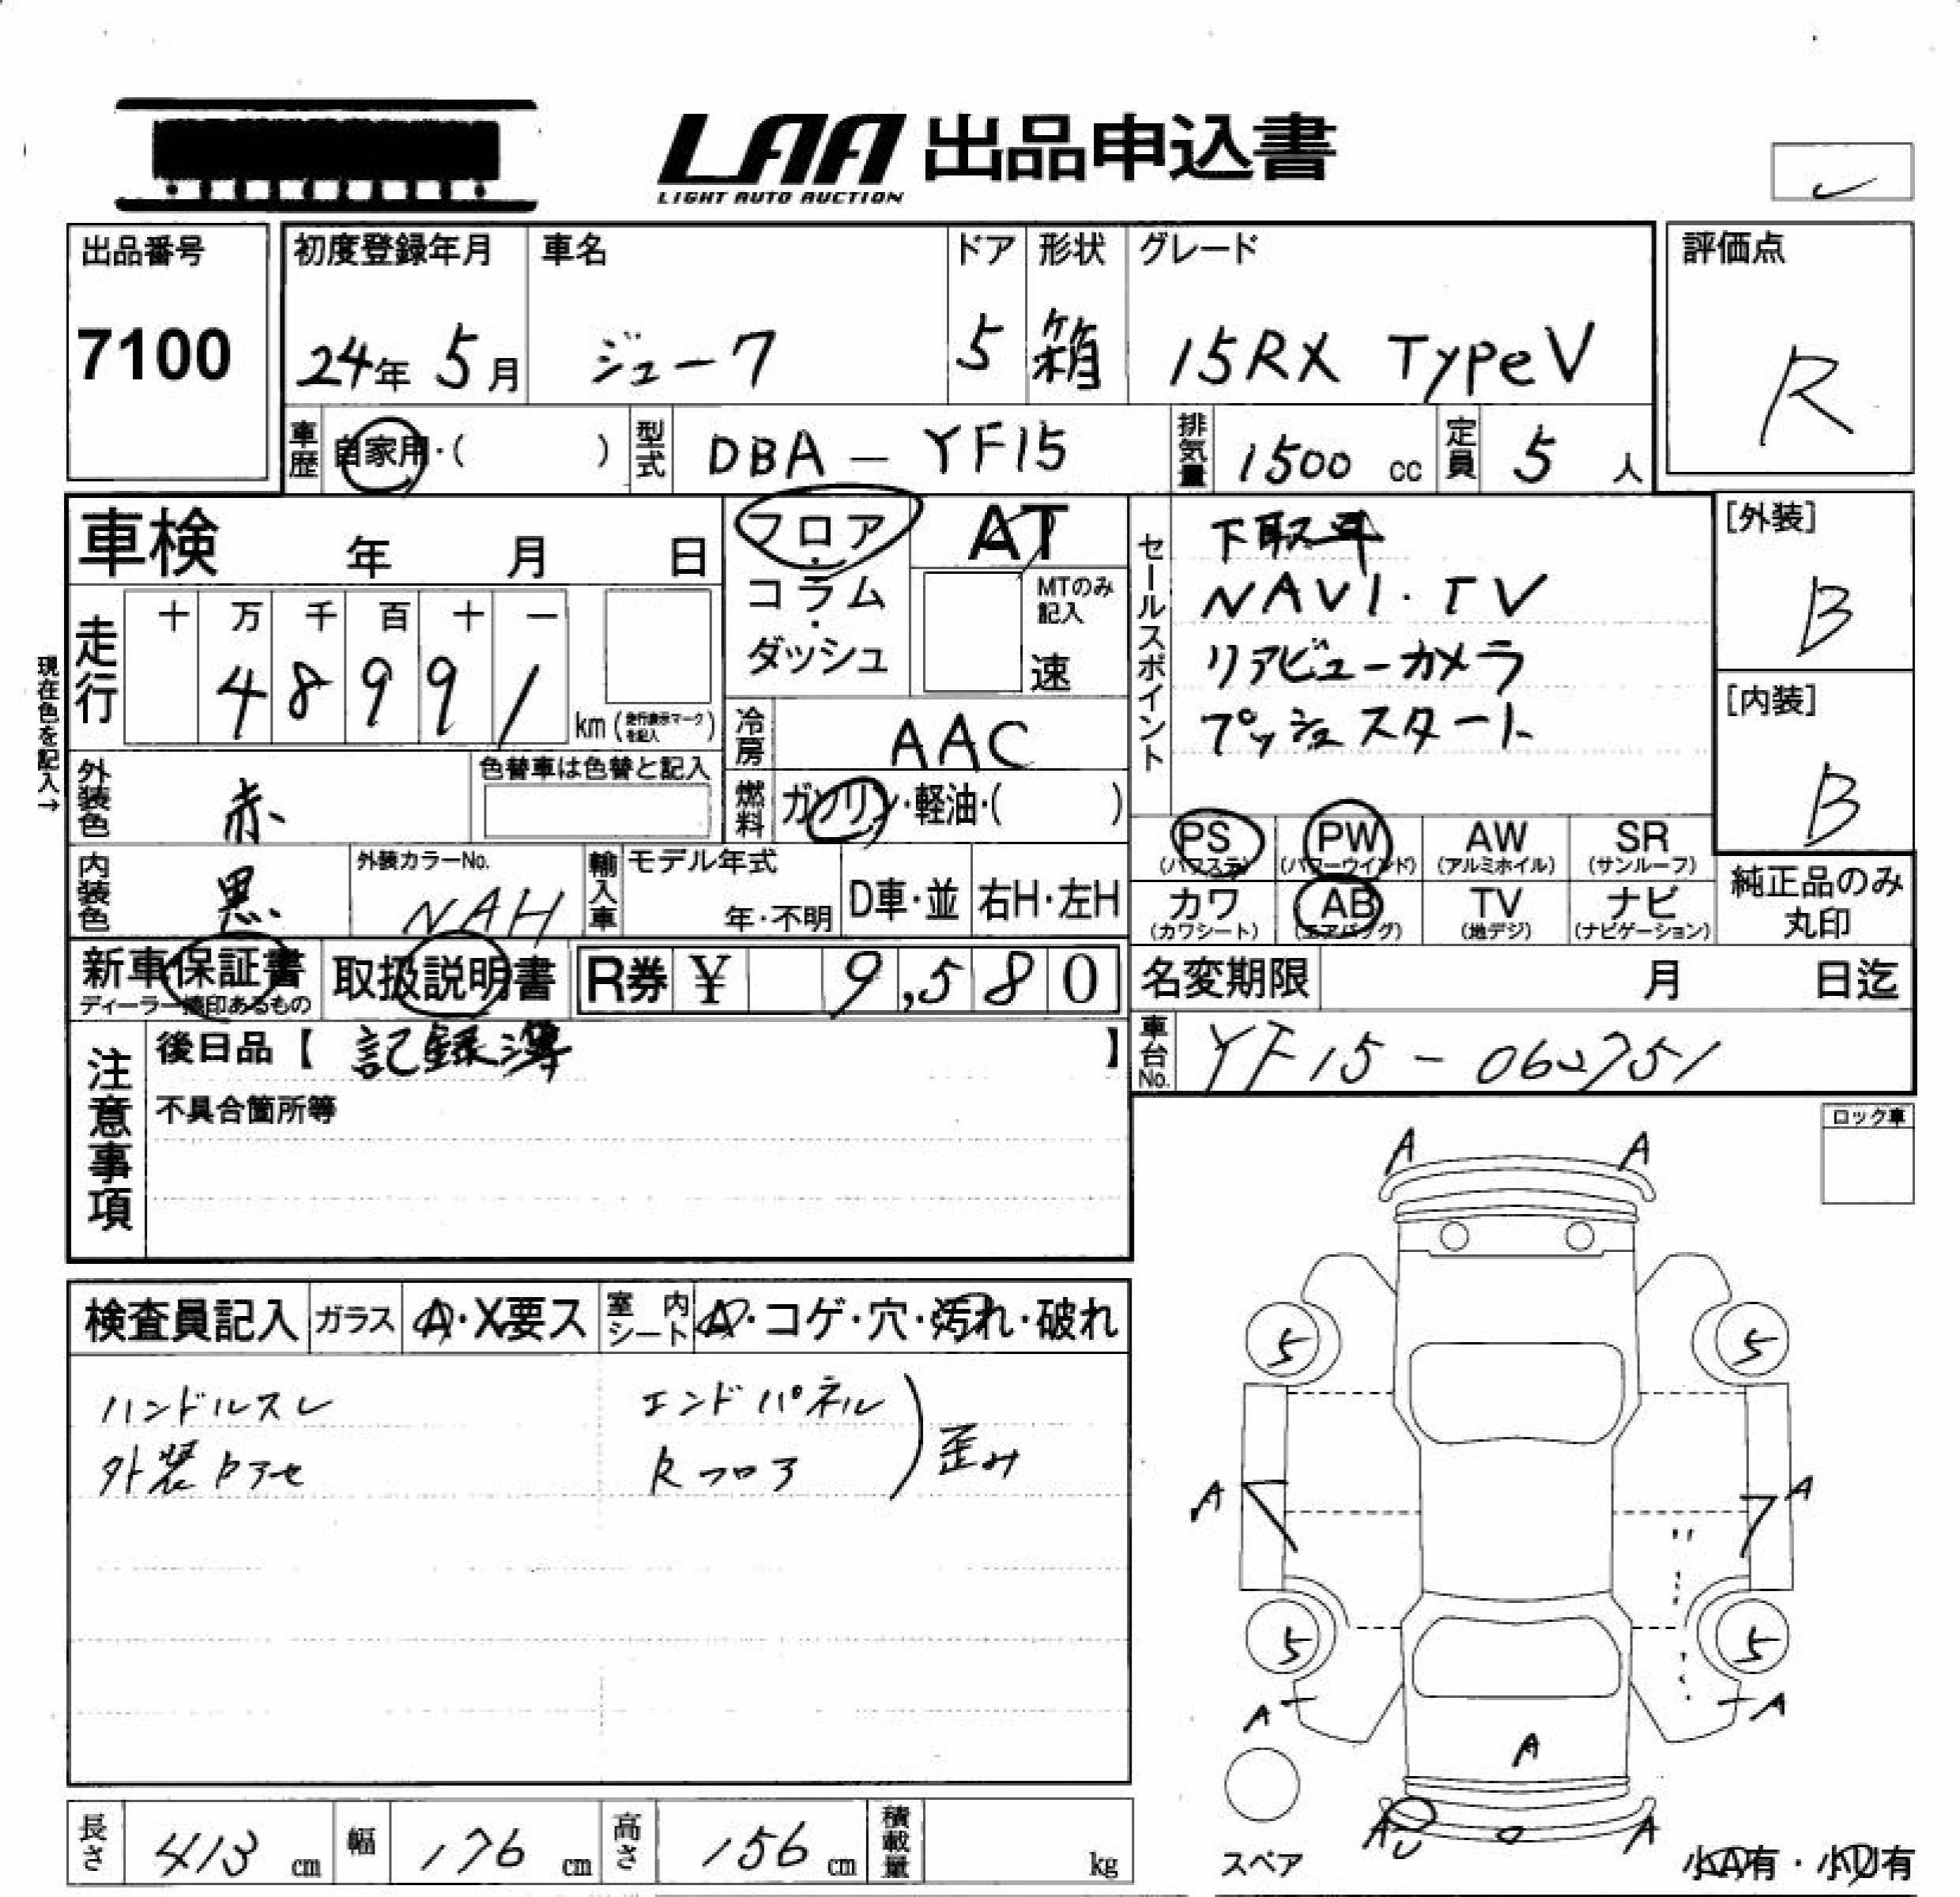 LAA 出品申込書
LIGHT AUTO AUCTION
出品番号 初度登録年月 車名 ドア 形状 グレード 評価点
7100 24年 5月 ジューク 5 箱 15RX TypeV R
車歴 自家用・( ) 型式 DBA - YF15 排気量 1500 cc 定員 5 人
車検 年 月 日
フロア・コラム・ダッシュ
AT
MTのみ記入
速
セールスポイント
下取車
NAVI・TV
リアビューカメラ
プッシュスタート
[外装]
B
[内装]
B
現在色を記入→
走行 十 万 千 百 十 一
4 8 9 9 1 km (走行表示マークを記入)
冷房 AAC
外装色 赤 色替車は色替と記入
燃料 ガソリン・軽油・( )
PS (パワステ) PW (パワーウインド) AW (アルミホイル) SR (サンルーフ)
カワ (カワシート) AB (エアバッグ) TV (地デジ) ナビ (ナビゲーション)
純正品のみ
丸印
内装色 黒 外装カラーNo. NAH 輸入車 モデル年式 年・不明 D車・並 右H・左H
新車保証書 取扱説明書 R券 ¥ 9,580
名変期限 月 日迄
車台No. YF15-062751
注意事項
後日品【 記録簿 】
不具合箇所等
ロック車
検査員記入 ガラス A・X要ス 室内シート A・コゲ・穴・汚れ・破れ
ハンドルスレ エンドパネル
外装色アセ Rフロア ) 歪み
A A
5 5
A A
5 5
A A
A
AU A
スペア 小A有・小U有
長さ 413 cm 幅 176 cm 高さ 156 cm 積載量 kg